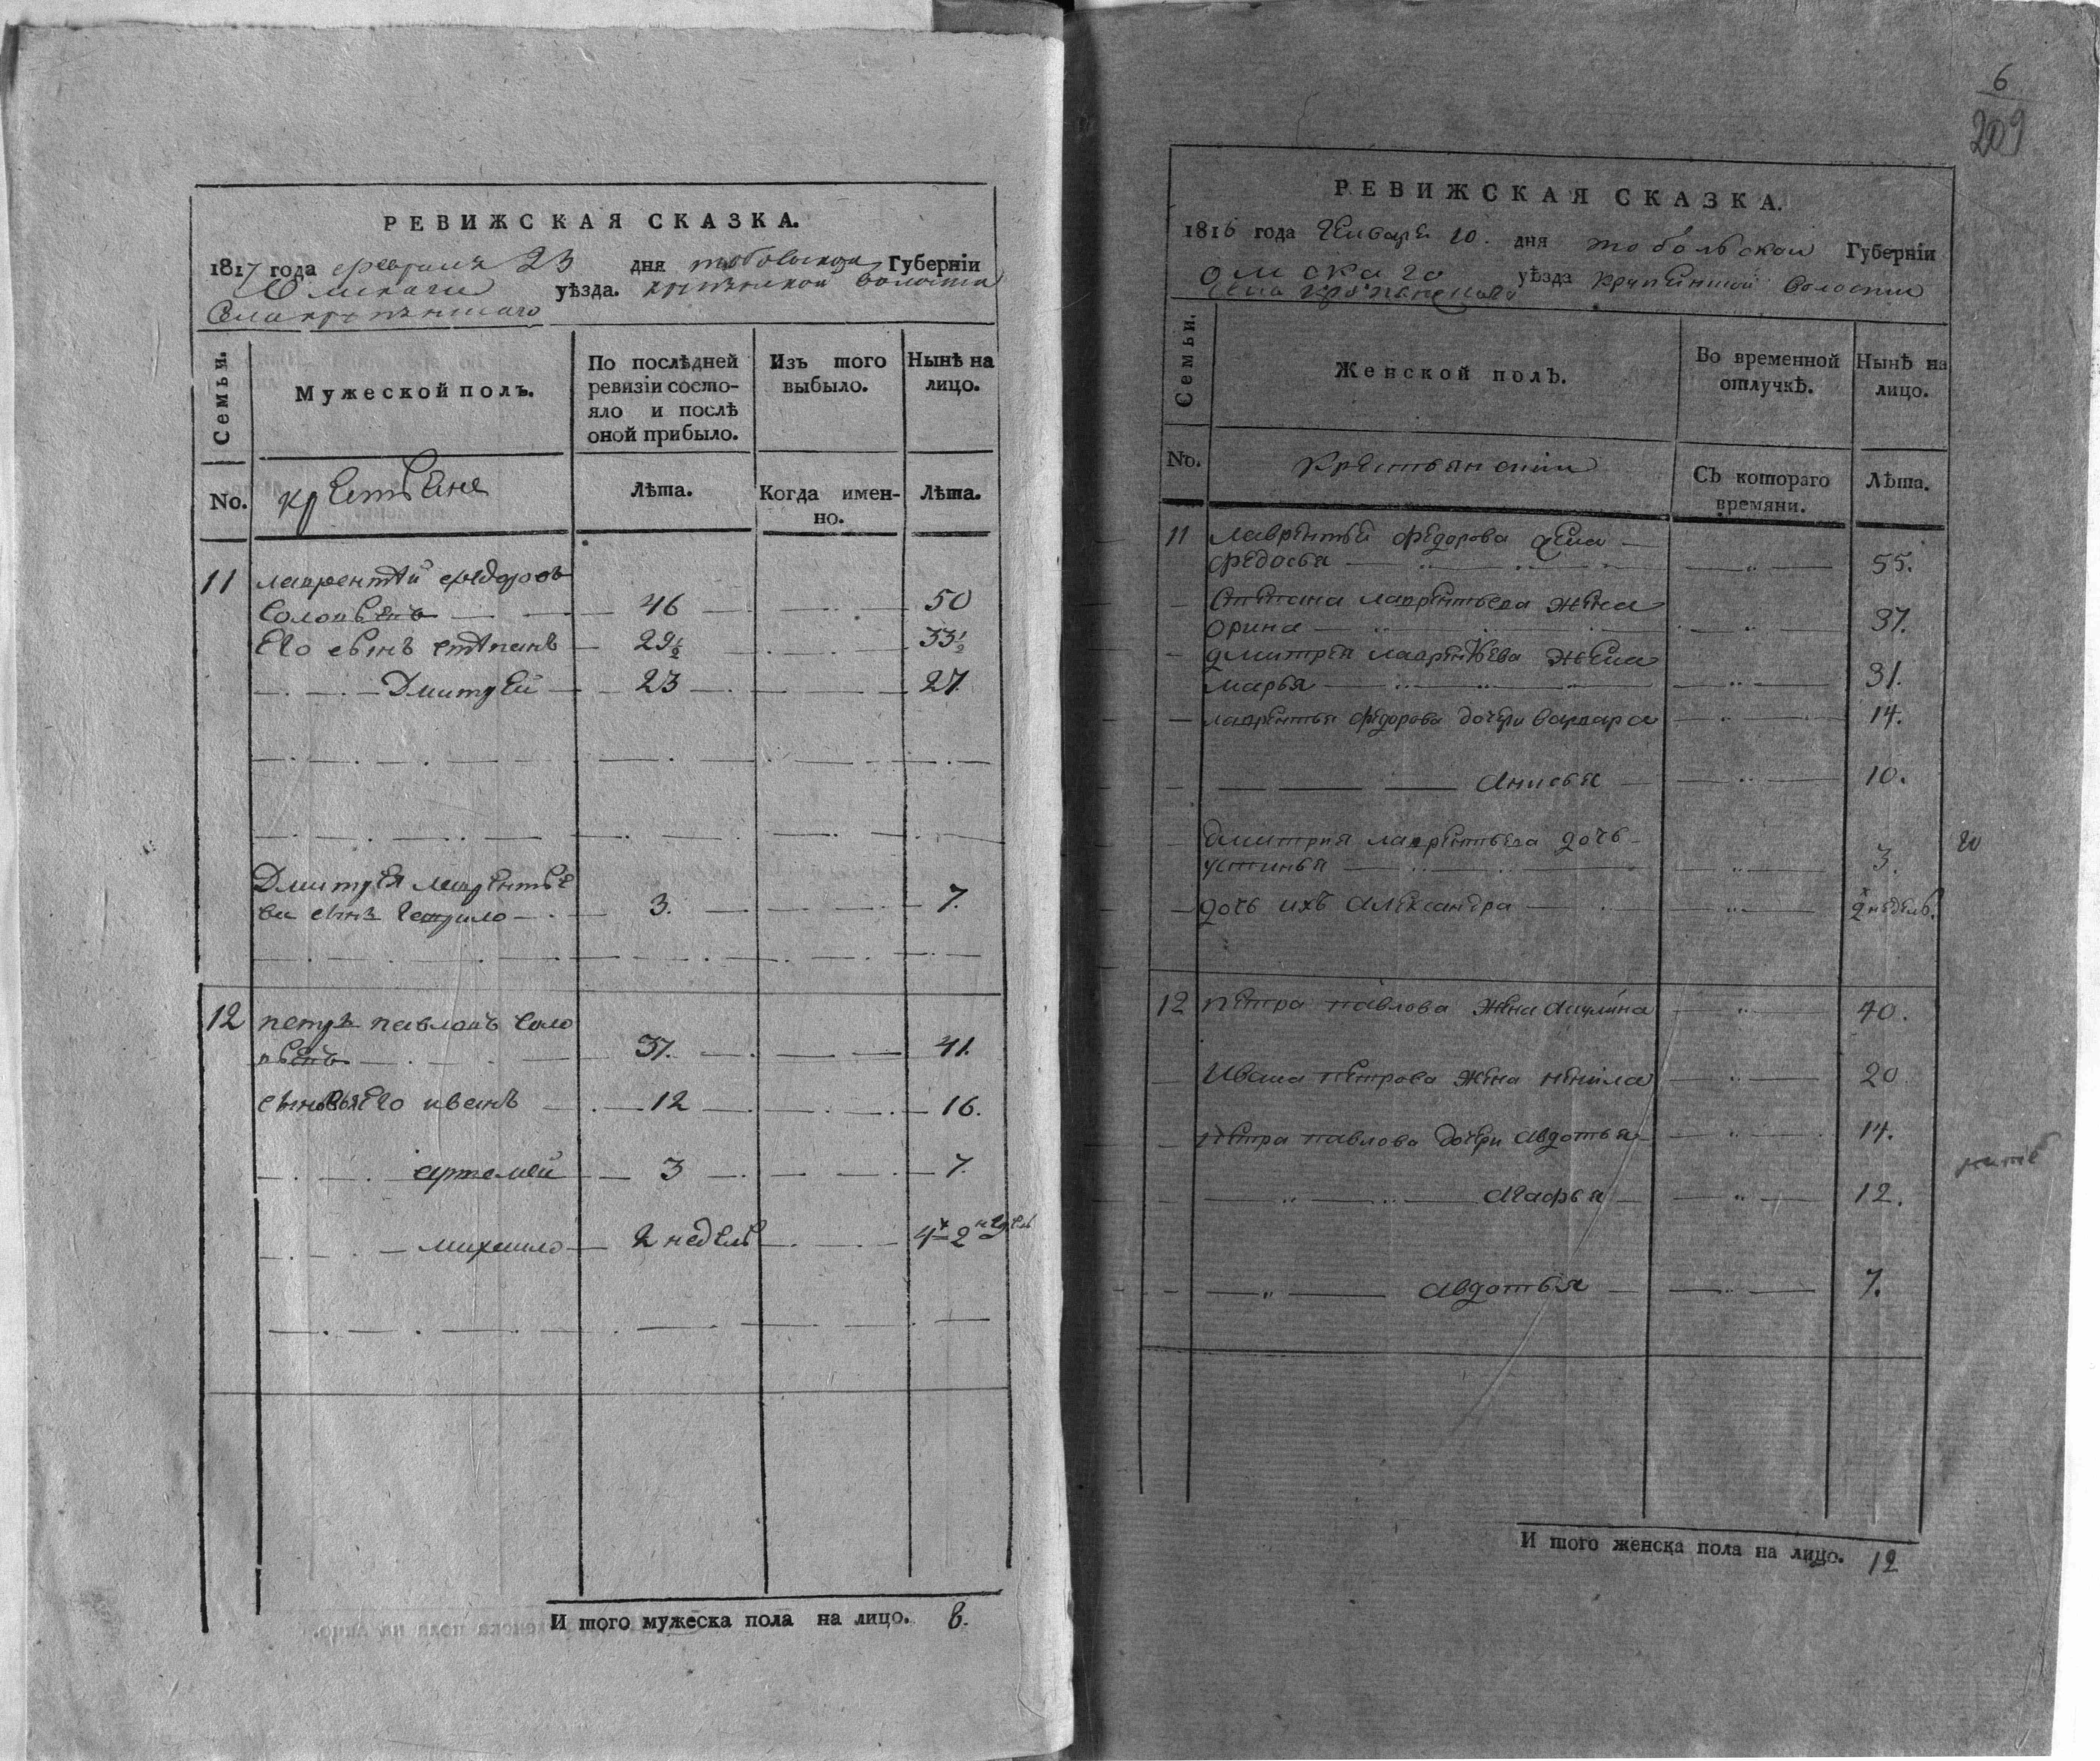 РЕВИЖСКАЯ СКАЗКА.
1817 года февраля 23 дня тобольской Губерніи
Омскаго уѣзда. крупѣнской волости
Села крупѣнскаго
Семьи.
Мужеской полъ.
По послѣдней ревизіи состояло и послѣ оной прибыло.
Изъ того выбыло.
Нынѣ на лицо.
No.
крестьяне
Лѣта.
Когда именно.
Лѣта.
11 лаврентѣй федоровъ
Соловьевъ 46 50
Его сынъ степанъ 29½ 33½
Дмитрей 23 27
Дмитрея лаврентье
ва сынъ 3. 7.
12 петръ павловъ Соло
вьевъ 37. 41.
сыновья Его иванъ 12 16.
артемей 3 7.
михайло 2 неделъ 4х 2 недель
И того мужеска пола на лицо. 8.
6
209
РЕВИЖСКАЯ СКАЗКА.
1816 года Генваря 10. дня тобольской Губерніи
омскаго уѣзда крупенской волости
Села
Семьи.
Женской полъ.
Во временной отлучкѣ.
Нынѣ на лицо.
No.
Съ котораго времяни.
Лѣта.
11 лаврентьей федорова жена
федосья 55.
Степана лаврентьева жена
орина 37.
дмитрея лаврентьева жена
марья 31.
лаврентья федорова дочери варвара 14.
анисья 10.
дмитрия лаврентьева дочь
устинья 3.
дочь ихъ александра 2 недель.
12 петра павлова жена акулина 40.
Ивана петрова жена ненила 20
петра павлова дочери авдотья 14.
агафья 12.
авдотья 7.
И того женска пола на лицо. 12